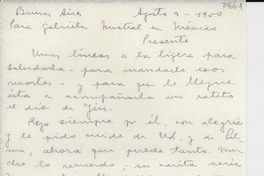 Buenos Aires Agosto 9 - 1950
Para Gabriela Mistral en México
Presente
Unas líneas a la ligera para
saludarla - para mandarle esos
recortes - y para que le llegue
ésta a acompañarla un ratito
el día de
siempre por él, con alegría
y le pido cuide de Ud. y de
ahora que puede tanto.
lo recuerdo, su carita seria